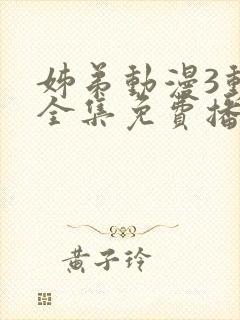 姊弟動漫3動
全集免費播
黃子玲